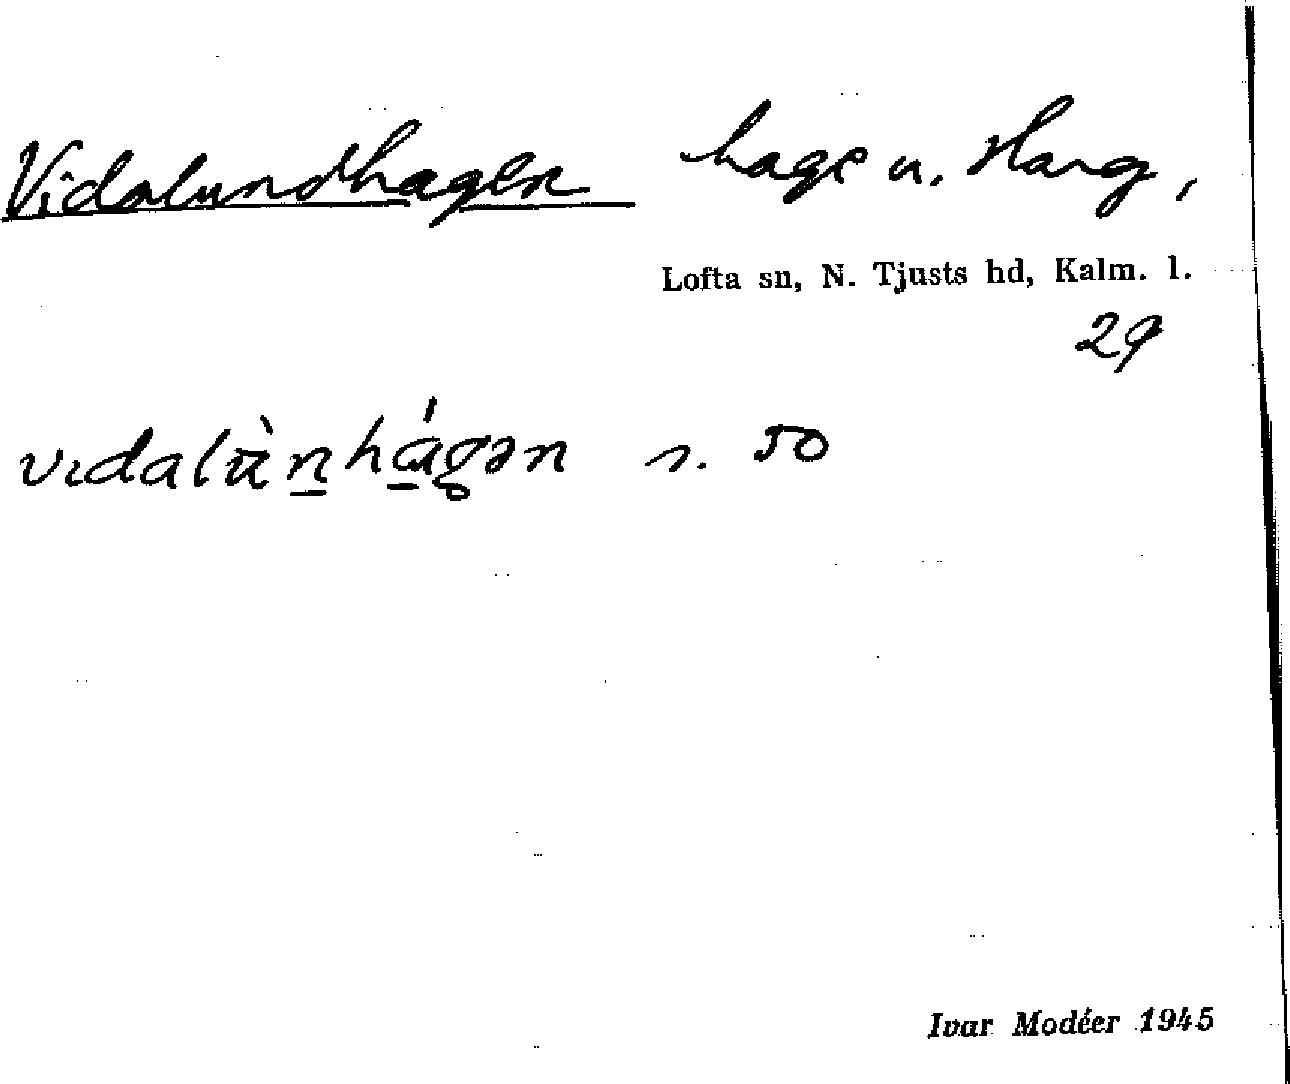 Vidalundhagen hage u. Harg,
Lofta sn, N. Tjusts hd, Kalm. l.
29
vɪdalùn̠há̠gən s. 50
Ivar Modéer 1945